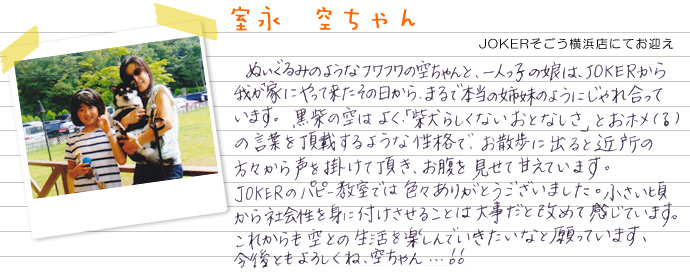 室永　空ちゃん
JOKERそごう横浜店にてお迎え
ぬいぐるみのようなフワフワの空ちゃんと、一人っ子の娘は、JOKERから
我が家にやって来たその日から、まるで本当の姉妹のようにじゃれ合って
います。黒柴の空はよく、「柴犬らしくないおとなしさ」とおホメ(る)
の言葉を頂戴するような性格で、お散歩に出ると近所の
方々から声を掛けて頂き、お腹を見せて甘えています。
JOKERのパピー教室では色々ありがとうございました。小さい頃
から社会性を身に付けさせることは大事だと改めて感じています。
これからも空との生活を楽しんでいきたいなと願っています、
今後ともよろしくね、空ちゃん…!!